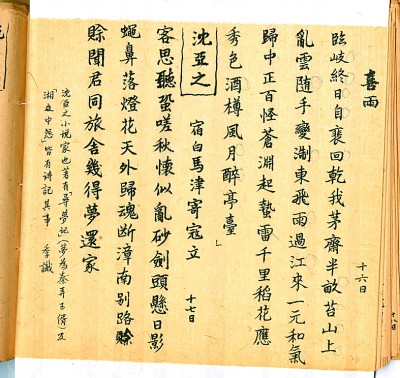 喜雨
十六日
臨歧終日自裴回乾我茅齋半畝苔山上
亂雲隨手變淛東飛雨過江來一元和氣
歸中正百怪蒼淵起蟄雷千里稻花應
秀色酒樽風月醉亭臺
沈亞之
宿白馬津寄寇立
十七日
客思聽蛩嗟秋懷似亂砂劍頭懸日影
蠅鼻落燈花天外歸魂斷漳南別路賒
賒聞君同旅舍幾得夢還家
沈亞之小說家也著有「尋夢記」(夢為秦弄玉婿)及
「湘中怨」皆有詩記其事 季識
十八日